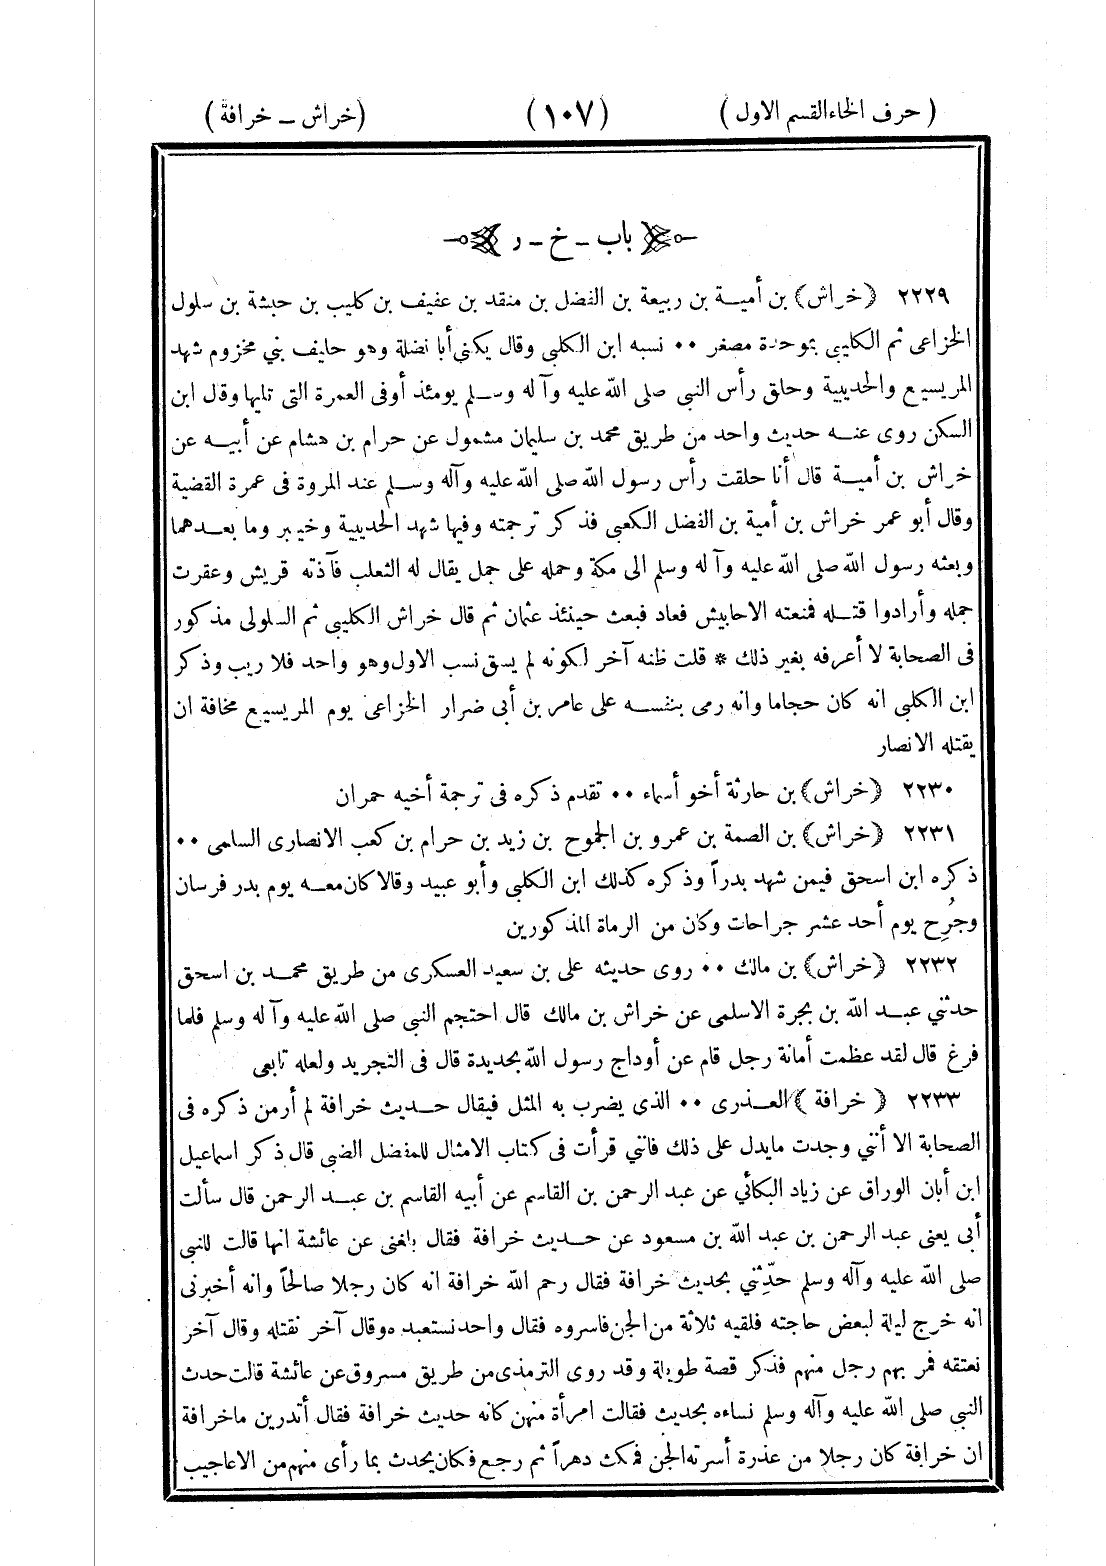 ( حرف الخاءالقسم الاول ) (١٠٧) (خراش ــ خرافة )
باب ــ خ ــ ر
٢٢٢٩ ﴿خراش﴾ بن أميــة بن ربيعة بن الفضل بن منقد بن عفيف بن كليب بن حبشة بن سلول
الخزاعى ثم الكليبى بموحدة مصغر ٠٠ نسبه ابن الكلبى وقال يكنى أبا نضلة وهو حليف بني مخزوم شهد
المريسيع والحديبية وحلق رأس النبى صلى الله عليه وآ له وسـلم يومئذ أوفى العمرة التى تليها وقال ابن
السكن روى عنـه حديث واحد من طريق محمد بن سليمان مشمول عن حرام بن هشام عن أبيــه عن
خراش بن أميــة قال أنا حلقت رأس رسول الله صلى الله عليه وآله وسـلم عند المروة فى عمرة القضية
وقال أبو عمر خراش بن أمية بن الفضل الكعبى فذكر ترجمته وفيها شهد الحديبية وخيبر وما بعـدهما
وبعثه رسول الله صلى الله عليه وآ له وسلم الى مكة وحمله على جمل يقال له الثعلب فآذته قريش وعقرت
جمله وأرادوا قتـله فمنعته الاحابيش فعاد فبعث حينئذ عثمان ثم قال خراش الكليبى ثم السلولى مذكور
فى الصحابة لا أعرفه بغير ذلك * قلت ظنه آخر لكونه لم يسق نسب الاول وهو واحد فلا ريب وذكر
ابن الكلبى انه كان حجاما وانه رمى بنفسـه على عامر بن أبى ضرار الخزاعى يوم المريسيع مخافة ان
يقتله الانصار
٢٢٣٠ ﴿خراش﴾ بن حارثة أخو أسماء ٠٠ تقدم ذكره فى ترجمة أخيه حمران
٢٢٣١ ﴿خراش﴾ بن الصمة بن عمرو بن الجموح بن زيد بن حرام بن كعب الانصارى السلمى ٠٠
ذكره ابن اسحق فيمن شهد بدراً وذكره كذلك ابن الكلبى وأبو عبيد وقالا كان معـه يوم بدر فرسان
وجُرِح يوم أحد عشر جراحات وكان من الرماة المذكورين
٢٢٣٢ ﴿خراش﴾ بن مالك ٠٠ روى حديثه على بن سعيد العسكرى من طريق محمـد بن اسحق
حدثني عبـد الله بن بجرة الاسلمى عن خراش بن مالك قال احتجم النبى صلى الله عليه وآ له وسلم فلما
فرغ قال لقد عظمت أمانة رجل قام عن أوداج رسول الله بحديدة قال فى التجريد ولعله تابعى
٢٢٣٣ ﴿ خرافة ﴾ العـذرى ٠٠ الذى يضرب به المثل فيقال حـديث خرافة لم أرمن ذكره فى
الصحابة الا أنني وجدت مايدل على ذلك فانني قرأت فى كتاب الامثال للمفضل الضبى قال ذكر اسماعيل
ابن أبان الوراق عن زياد البكائي عن عبد الرحمن بن القاسم عن أبيه القاسم بن عبـد الرحمن قال سألت
أبى يعنى عبد الرحمن بن عبد الله بن مسعود عن حـديث خرافة فقال بلغنى عن عائشة انها قالت للنبى
صلى الله عليه وآله وسلم حدِّثني بحديث خرافة فقال رحم الله خرافة انه كان رجلا صالحاً وانه أخبرنى
انه خرج ليلة لبعض حاجته فلقيه ثلاثة من الجن فاسروه فقال واحد نستعبده وقال آخر نقتله وقال آخر
نعتقه فمر بهم رجل منهم فذكر قصة طويلة وقد روى الترمذى من طريق مسروق عن عائشة قالت حدث
النبى صلى الله عليه وآله وسلم نساءه بحديث فقالت امرأة منهن كانه حديث خرافة فقال أتدرين ماخرافة
ان خرافة كان رجلا من عذرة أسرته الجن فمكث دهراً ثم رجع فكان يحدث بما رأى منهم من الاعاجيب